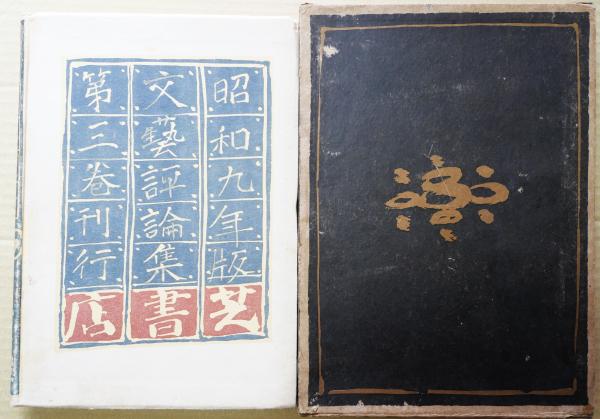 昭和九年版
文藝評論集
第三巻刊行
芝書店